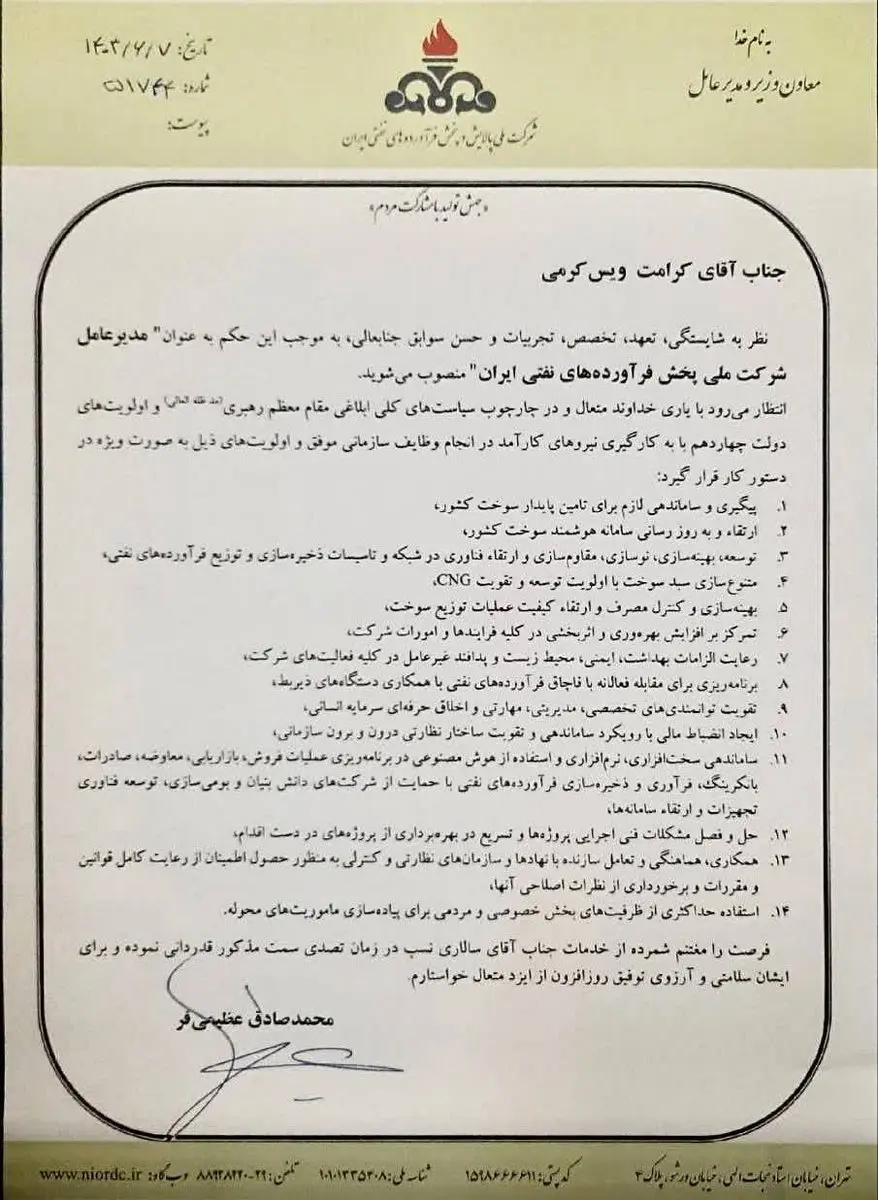 به نام خدا
معاون وزیر و مدیر عامل
شرکت ملی پالایش و پخش فرآورده‌های نفتی ایران
تاریخ: ۱۴۰۳/۶/۷
شماره: ۵۱۷۴۴
پیوست:
«جهش تولید با مشارکت مردم»
جناب آقای کرامت ویس کرمی
نظر به شایستگی، تعهد، تخصص، تجربیات و حسن سوابق جنابعالی، به موجب این حکم به عنوان" مدیرعامل
شرکت ملی پخش فرآورده‌های نفتی ایران" منصوب می‌شوید.
انتظار می‌رود با یاری خداوند متعال و در چارچوب سیاست‌های کلی ابلاغی مقام معظم رهبری(مد ظله العالی) و اولویت‌های
دولت چهاردهم با به کارگیری نیروهای کارآمد در انجام وظایف سازمانی موفق و اولویت‌های ذیل به صورت ویژه در
دستور کار قرار گیرد:
۱. پیگیری و ساماندهی لازم برای تامین پایدار سوخت کشور،
۲. ارتقاء و به روز رسانی سامانه هوشمند سوخت کشور،
۳. توسعه، بهینه‌سازی، نوسازی، مقاوم‌سازی و ارتقاء فناوری در شبکه و تاسیسات ذخیره‌سازی و توزیع فرآورده‌های نفتی،
۴. متنوع‌سازی سبد سوخت با اولویت توسعه و تقویت CNG،
۵. بهینه‌سازی و کنترل مصرف و ارتقاء کیفیت عملیات توزیع سوخت،
۶. تمرکز بر افزایش بهره‌وری و اثربخشی در کلیه فرایندها و امورات شرکت،
۷. رعایت الزامات بهداشت، ایمنی، محیط زیست و پدافند غیرعامل در کلیه فعالیت‌های شرکت،
۸. برنامه‌ریزی برای مقابله فعالانه با قاچاق فرآورده‌های نفتی با همکاری دستگاه‌های ذیربط،
۹. تقویت توانمندی‌های تخصصی، مدیریتی، مهارتی و اخلاق حرفه‌ای سرمایه انسانی،
۱۰. ایجاد انضباط مالی با رویکرد ساماندهی و تقویت ساختار نظارتی درون و برون سازمانی،
۱۱. ساماندهی سخت‌افزاری، نرم‌افزاری و استفاده از هوش مصنوعی در برنامه‌ریزی عملیات فروش، بازاریابی، معاوضه، صادرات،
بانکرینگ، فرآوری و ذخیره‌سازی فرآورده‌های نفتی با حمایت از شرکت‌های دانش بنیان و بومی‌سازی، توسعه فناوری
تجهیزات و ارتقاء سامانه‌ها،
۱۲. حل و فصل مشکلات فنی اجرایی پروژه‌ها و تسریع در بهره‌برداری از پروژه‌های در دست اقدام،
۱۳. همکاری، هماهنگی و تعامل سازنده با نهادها و سازمان‌های نظارتی و کنترلی به منظور حصول اطمینان از رعایت کامل قوانین
و مقررات و برخورداری از نظرات اصلاحی آنها،
۱۴. استفاده حداکثری از ظرفیت‌های بخش خصوصی و مردمی برای پیاده‌سازی ماموریت‌های محوله.
فرصت را مغتنم شمرده از خدمات جناب آقای سالاری نسب در زمان تصدی سمت مذکور قدردانی نموده و برای
ایشان سلامتی و آرزوی توفیق روزافزون از ایزد متعال خواستارم.
محمدصادق عظیمی‌فر
تهران، خیابان استاد نجات الهی، خیابان ورشو، پلاک ۴ کد پستی: ۱۵۹۸۶۶۶۶۱۱ شناسه ملی: ۱۰۱۰۱۳۳۵۳۰۸ تلفن: ۲۹-۸۸۹۲۸۲۲۰ وب‌گاه: www.niordc.ir